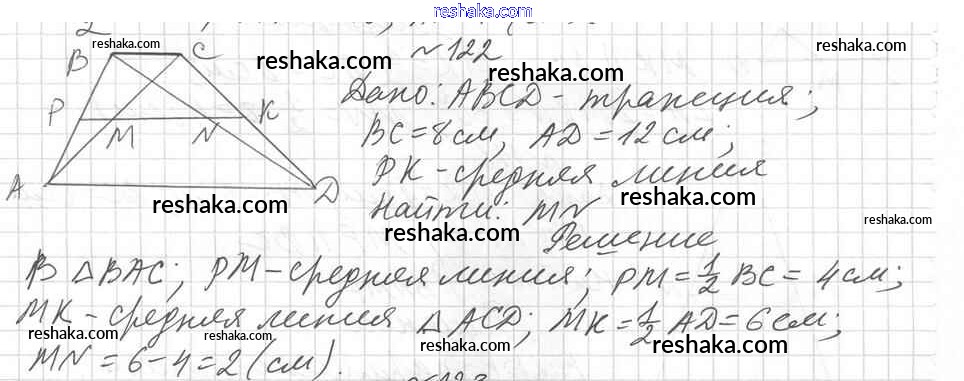 reshaka.com
№122
B C
P M N K
A D
Дано: ABCD - трапеция;
BC = 8 см, AD = 12 см;
PK - средняя линия
Найти: MN
Решение
В △BAC; PM - средняя линия; PM = 1/2 BC = 4 см;
MK - средняя линия △ACD; MK = 1/2 AD = 6 см;
MN = 6 - 4 = 2 (см).
reshaka.com
reshaka.com
reshaka.com
reshaka.com
reshaka.com
reshaka.com
reshaka.com
reshaka.com
reshaka.com
reshaka.com
reshaka.com
reshaka.com